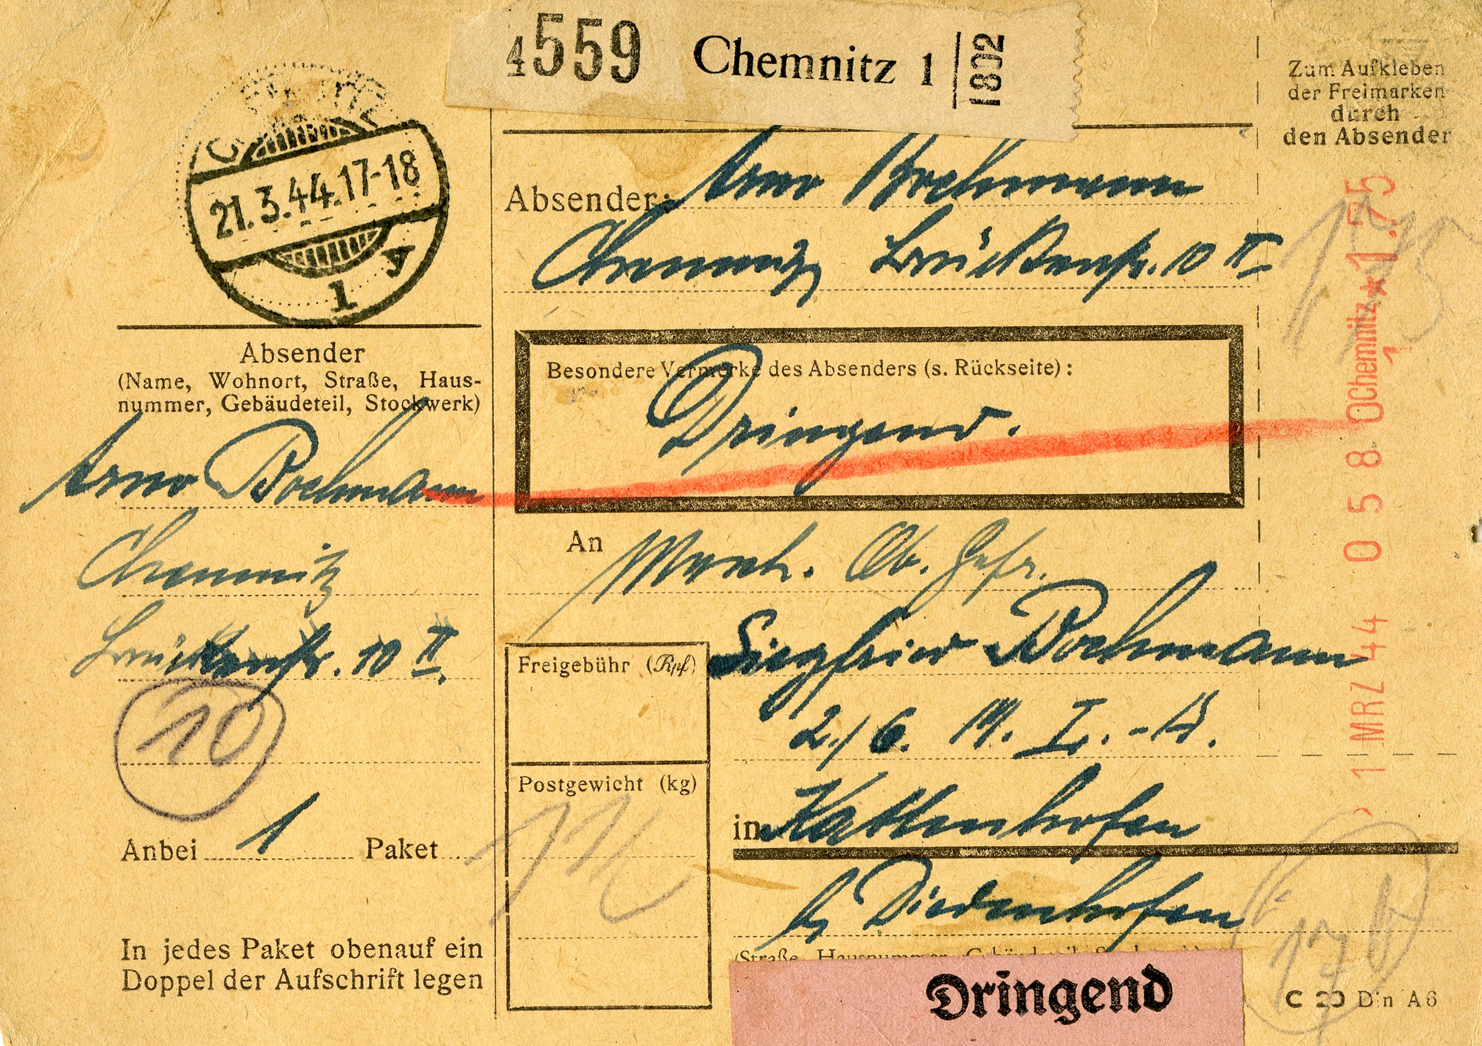 4559 Chemnitz 1 1892
Zum Aufkleben
der Freimarken
durch
den Absender
21.3.44.17-18
1 y
Absender: Arno Bochmann
Chemnitz, Brückenstr. 10 II
Absender
(Name, Wohnort, Straße, Haus-
nummer, Gebäudeteil, Stockwerk)
Arno Bochmann
Chemnitz
Brückenstr. 10 II.
10
Anbei 1 Paket
In jedes Paket obenauf ein
Doppel der Aufschrift legen
Besondere Vermerke des Absenders (s. Rückseite):
Dringend.
An Ob. Gefr.
Siegfried Bochmann
Freigebühr (Rpf)
Postgewicht (kg)
in Kattenhofen
b/ Diedenhofen
Dringend
C 20 Din A6
1 MRZ 44 0 5 8 Chemnitz 1 * 1.75
175